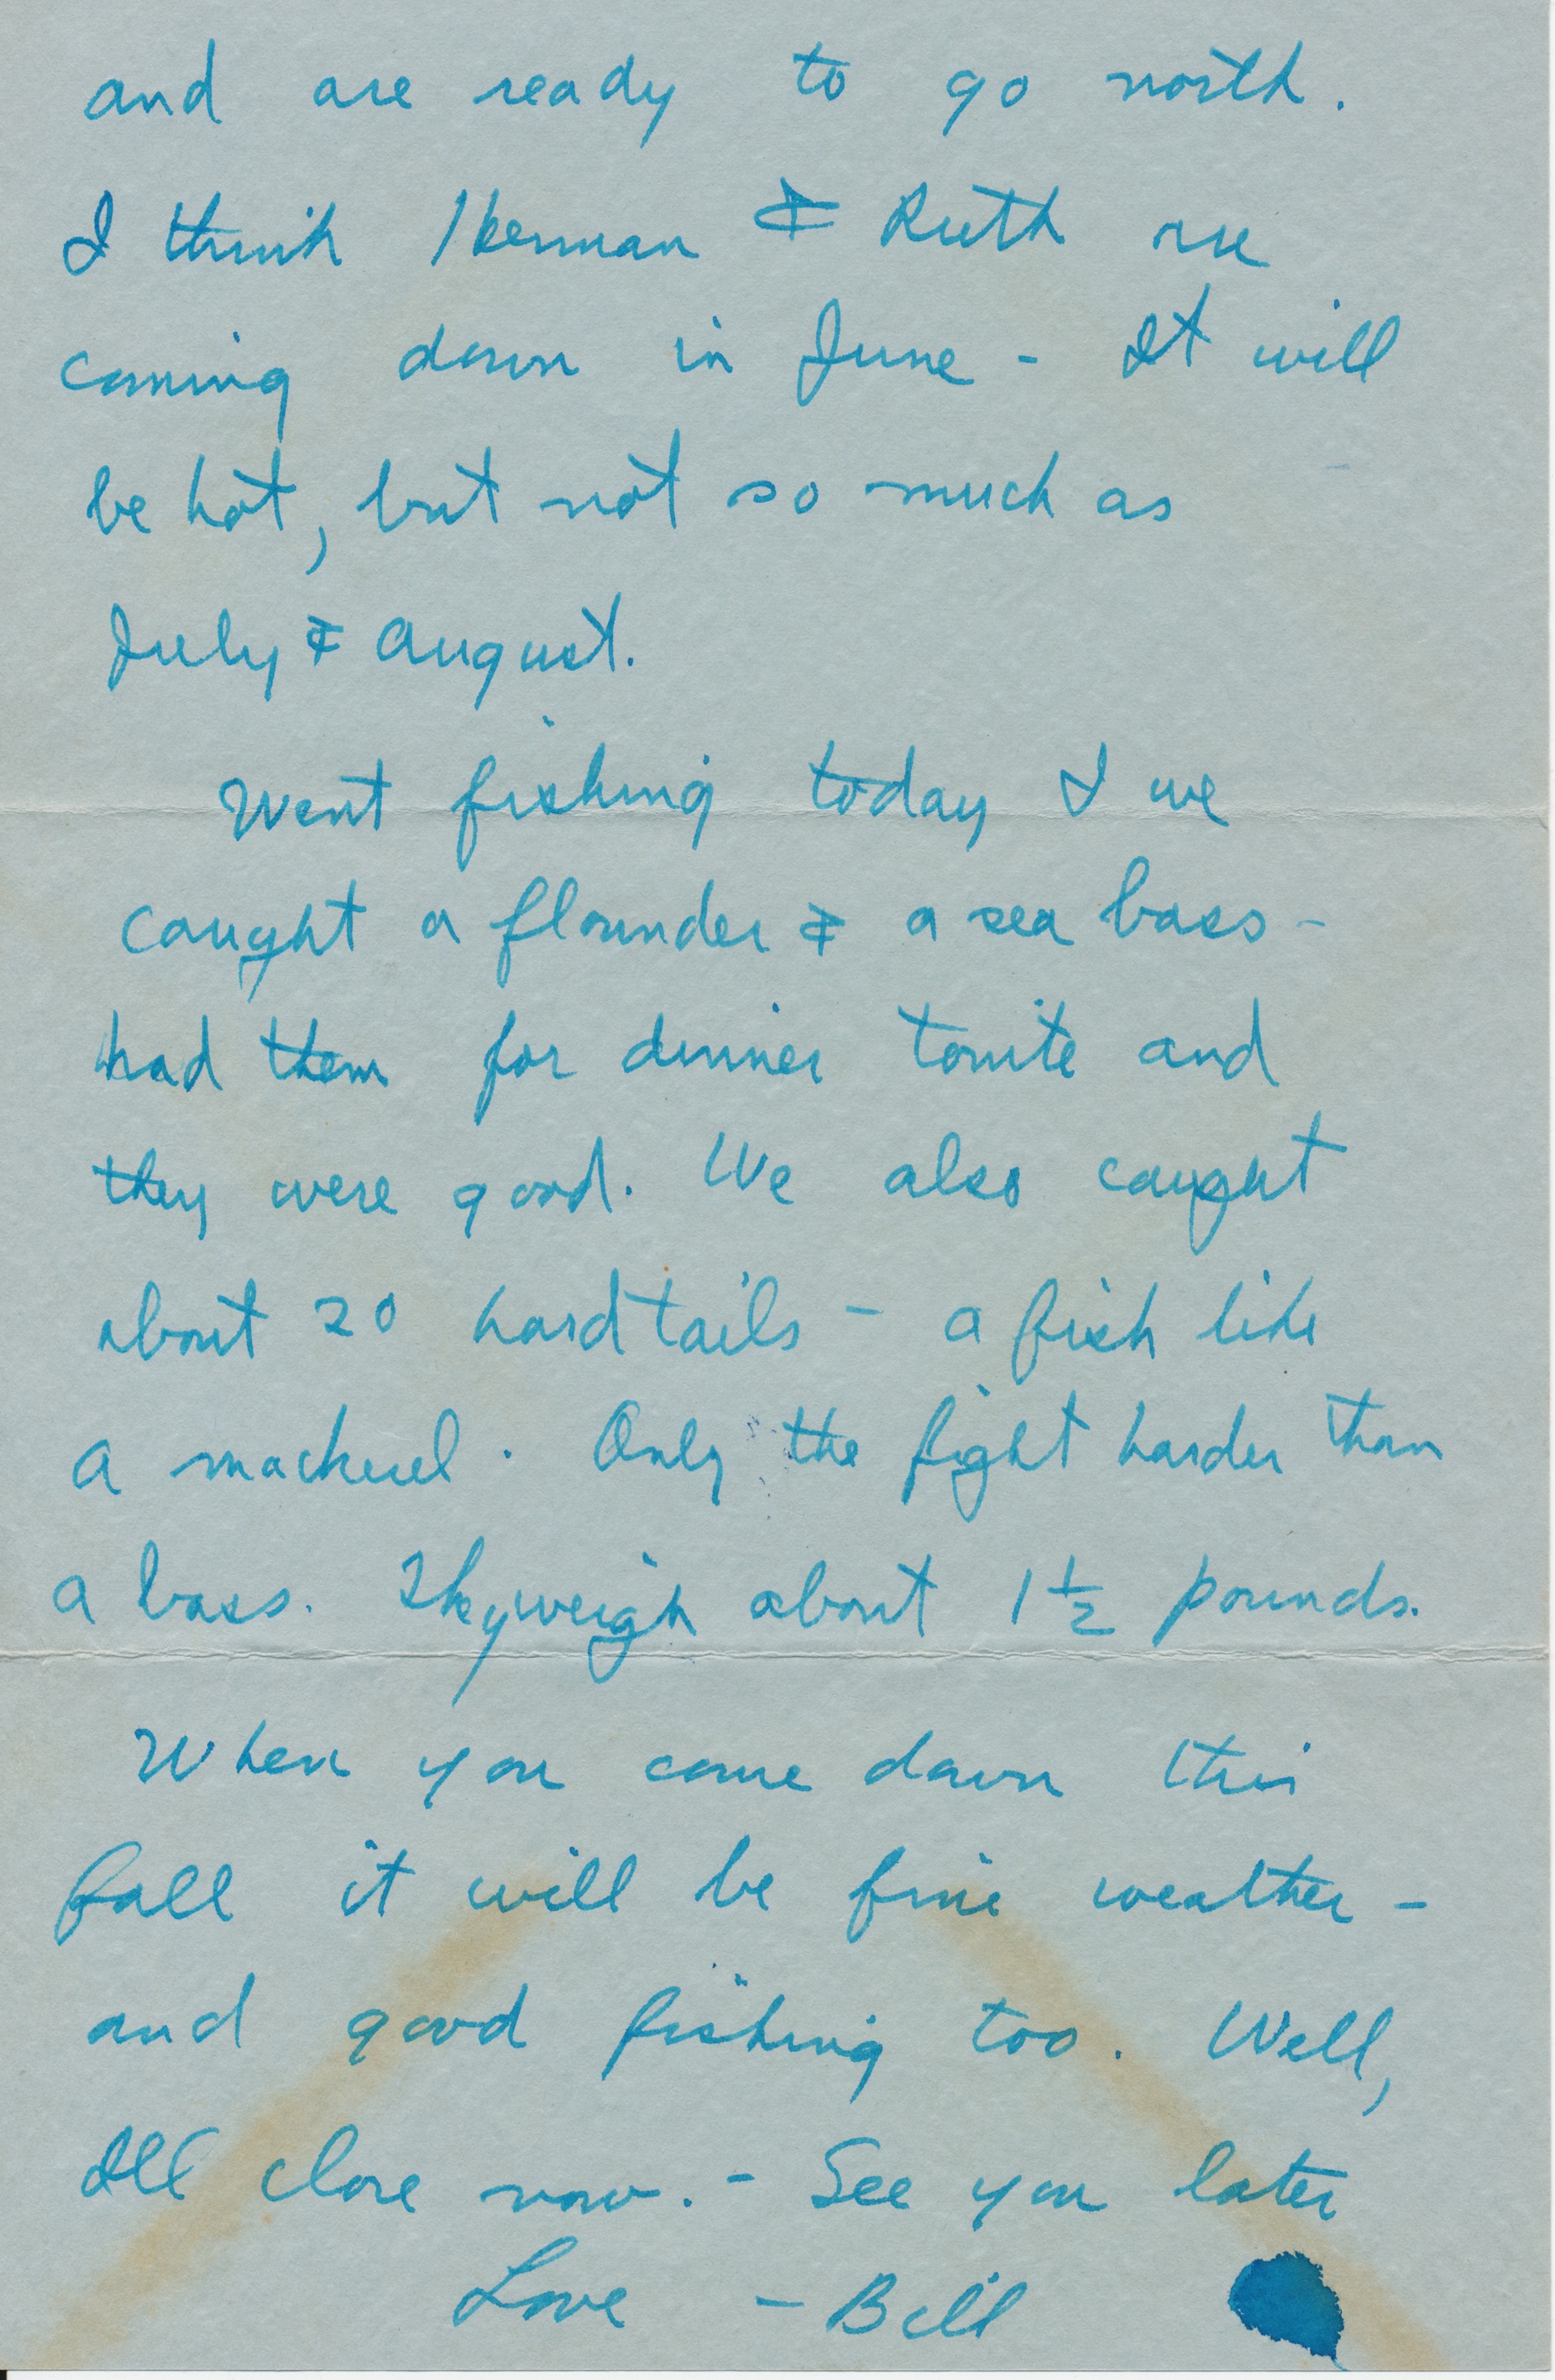 and are ready to go north.
I think Herman & Ruth are
coming down in June - It will
be hot, but not so much as
July & August.
Went fishing today I we
caught a flounder & a sea bass -
had them for dinner tonite and
they were good. We also caught
about 20 hardtails - a fish like
a mackerel. Only the fight harder than
a bass. They weigh about 1 1/2 pounds.
When you come down this
fall it will be fine weather -
and good fishing too. Well,
Ill close now. - See you later
Love - Bill